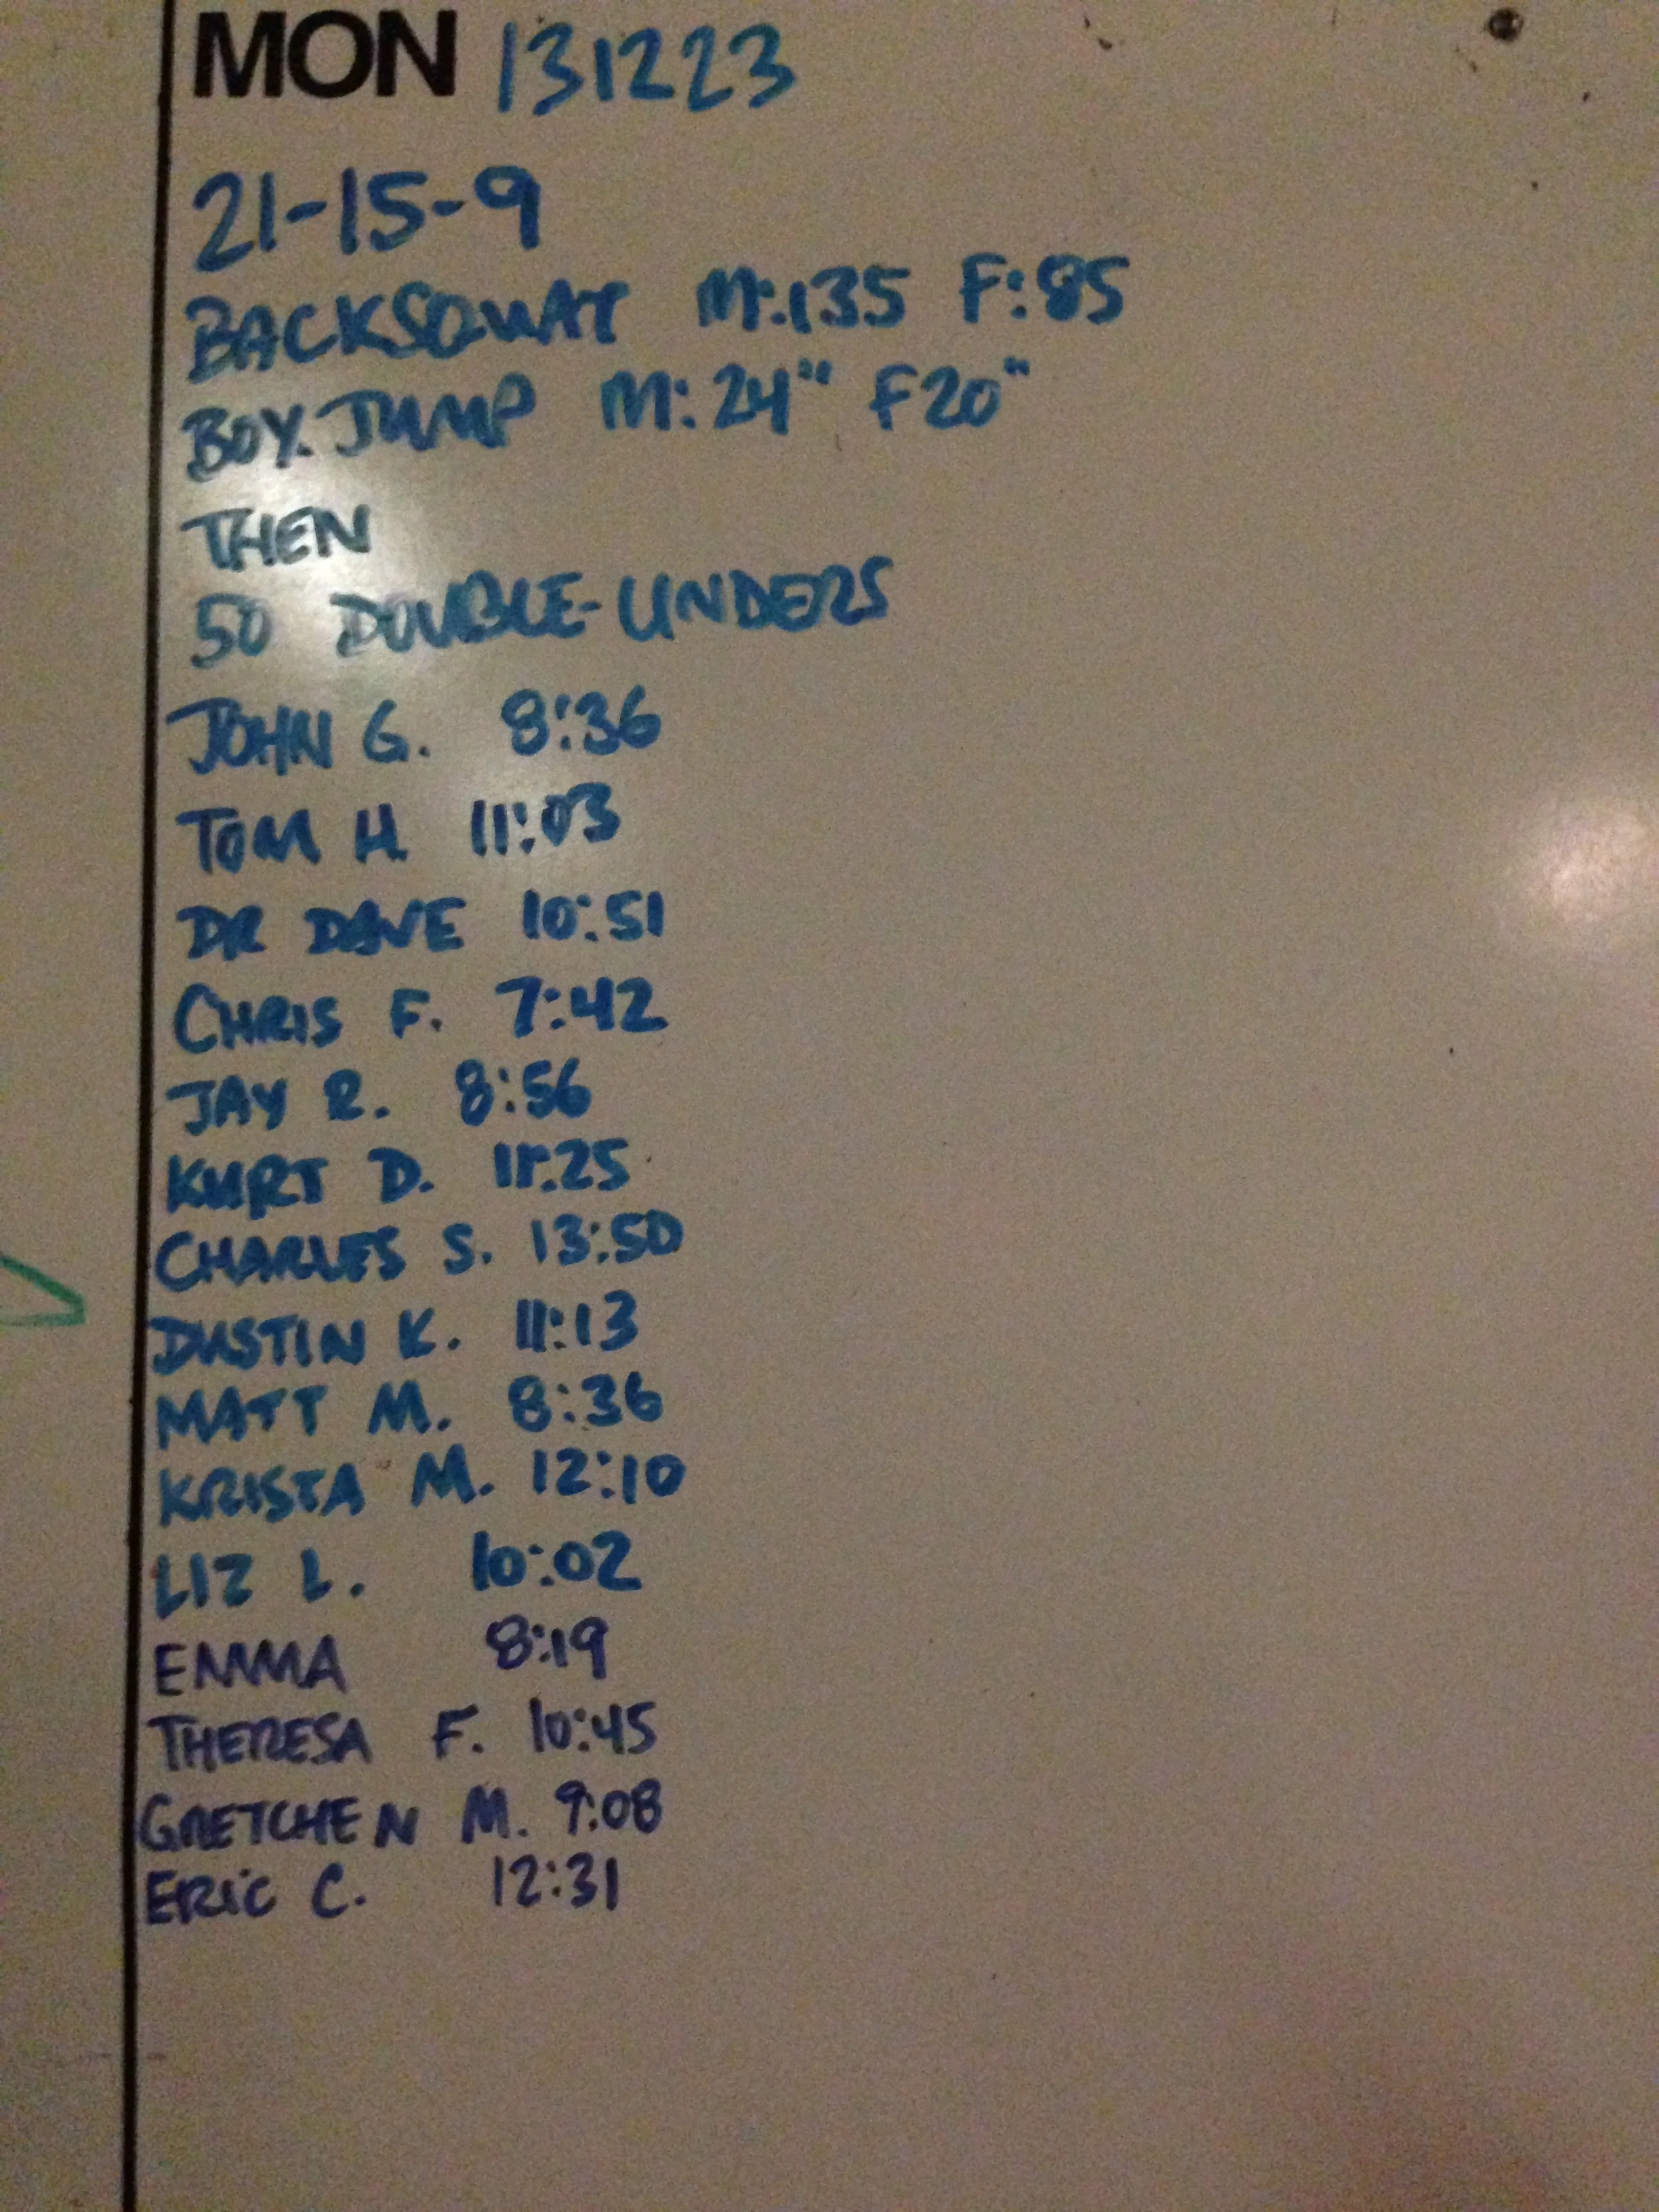 MON 131223
21-15-9
BACKSQUAT M:135 F:85
BOX JUMP M:24" F20"
THEN
50 DOUBLE-UNDERS
JOHN G. 8:36
TOM H. 11:03
DR DAVE 10:51
CHRIS F. 7:42
JAY R. 8:56
KURT D. 11:25
CHARLES S. 13:50
DUSTIN K. 11:13
MATT M. 8:36
KRISTA M. 12:10
LIZ L. 10:02
EMMA 8:19
THERESA F. 10:45
GRETCHEN M. 9:08
ERIC C. 12:31